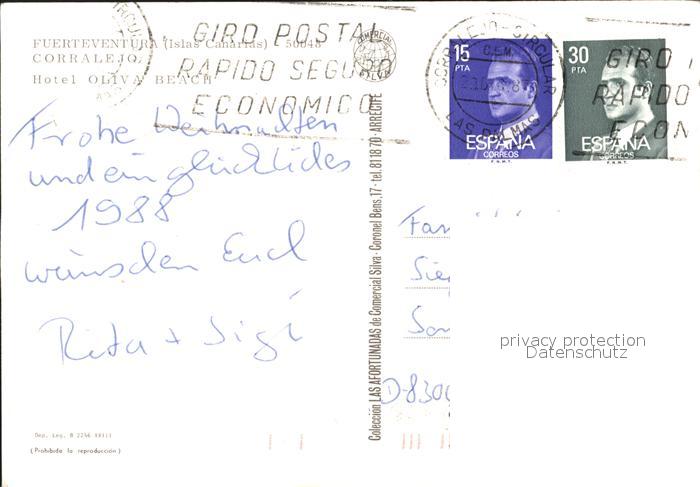 FUERTEVENTURA (Islas Canarias) 50048
CORRALEJO
Hotel OLIVA BEACH
GIRO POSTAL
RAPIDO SEGURO
ECONOMICO
Frohe Weihnachten
und ein glückliches
1988
wünschen Euch
Rita + Sigi
Dep. Leg. B 2256 XXIII
(Prohibida la reproducción)
Colección LAS AFORTUNADAS de Comercial Silva - Coronel Bens, 17 - tel. 81 18 70 - ARRECIFE
CORRALEJO - CIRCULAR
LAS PALMAS
15
PTA
ESPAÑA
CORREOS
F.N.M.T.
30
PTA
ESPAÑA
CORREOS
F.N.M.T.
GIRO
RAPIDO
ECON
Fam
Sie
D-830
privacy protection
Datenschutz